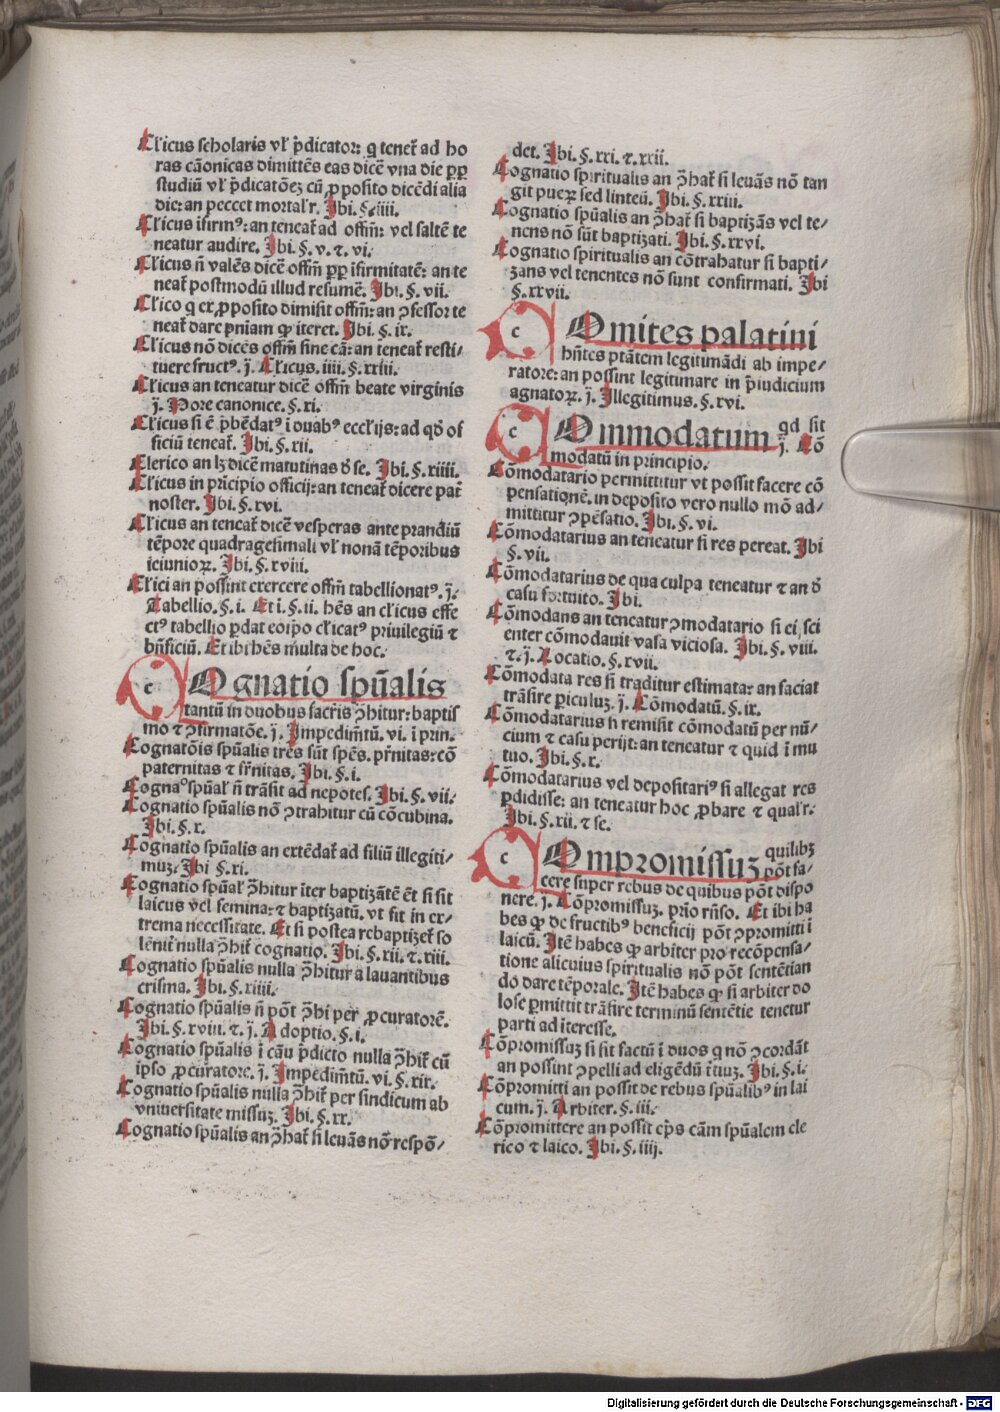 Cl'icus scholaris vl' p̄dicator: q tenet̄ ad ho
ras cāonicas dimittēs eas dicē vna die ꝓp
studiū vl' p̄dicatōeꝫ cū ꝓposito dicēdi alia
die: an peccet mortal'r. Ibi. §. iiii.
Cl'icus ifirmꝰ: an teneat̄ ad offm̄: vel saltē te
neatur audire. Ibi. §. v. ⁊. vi.
Cl'icus ñ valēs dicē offm̄ ꝓp ifirmitatē: an te
neat̄ postmodū illud resumē. Ibi. §. vii.
Cl'ico q ex ꝓposito dimisit offm̄: an ꝯfessor te
neat̄ dare pniam ꝙ iteret. Ibi. §. ix.
Cl'icus nō dicēs offm̄ sine cā: an teneat̄ resti/
tuere fructꝰ. j̄. Cl'icus. iiii. §. xxiii.
Cl'icus an teneatur dicē offm̄ beate virginis
j̄. Hore canonice. §. xi.
Cl'icus si ē p̄bēdatꝰ ī duabꝰ eccl'ijs: ad qđ of
ficiū teneat̄. Ibi. §. xii.
Clerico an lꝫ dicē matutinas đ se. Ibi. §. xiiii.
Cl'icus in prīcipio officij: an teneat̄ dicere pat̄
noster. Ibi. §. xvi.
Cl'icus an teneat̄ dicē vesperas ante prandiū
tēpore quadragesimali vl' nonā tēporibus
ieiunioꝝ. Ibi. §. xviii.
Cl'ici an possint exercere offm̄ tabellionatꝰ. j̄.
Tabellio. §. i. Et i. §. ii. hēs an cl'icus effe
ctꝰ tabellio ꝑdat eoip̄o cl'icatꝰ priuilegiū ⁊
bn̄ficiū. Et ibi hēs multa de hoc.
c Ognatio spūalis
tantū in duobus sacris ꝓhibitur: baptis
mo ⁊ ꝯfirmatōe. j̄. Impedimtū. vi. ī prin.
Cognatōis spūalis tres sūt spēs. pr̄nitas: cō
paternitas ⁊ fr̄nitas. Ibi. §. i.
Cognaᵒ spūal' ñ trāsit ad nepotes. Ibi. §. vii.
Cognatio spūalis nō ꝯtrahitur cū cōcubina.
Ibi. §. x.
Cognatio spūalis an extēdat̄ ad filiū illegiti/
muꝫ. Ibi §. xi.
Cognatio spūal' ꝯhitur iter baptizātē ēt si sit
laicus vel femina: ⁊ baptizatū. vt fit in ex/
trema necessitate. Et si postea rebaptizet̄ so
lēnit̄ nulla ꝯhit̄ cognatio. Ibi. §. xii. ⁊. xiii.
Cognatio spūalis nulla ꝯhitur a lauantibus
crisma. Ibi. §. xiiii.
Cognatio spūalis ñ pōt ꝯhi per ꝓcuratorē.
Ibi. §. xviii. ⁊. j̄. Adoptio. §. i.
Cognatio spūalis ī cāu p̄dicto nulla ꝯhit̄ cū
ipso ꝓcuratore. j̄. Impedimtū. vi. §. xix.
Cognatio spūalis nulla ꝯhit̄ per sindicum ab
vniuersitate missuꝫ. Ibi. §. xx.
Cognatio spūalis an ꝯhat̄ si leuās nō respō/
det. Ibi. §. xxi. ⁊. xxii.
Cognatio spiritualis an ꝯhat̄ si leuās nō tan
git pueꝝ sed linteū. Ibi. §. xxiii.
Cognatio spūalis an ꝯhat̄ si baptizās vel te/
nens nō sūt baptizati. Ibi. §. xxvi.
Cognatio spiritualis an cōtrahatur si bapti/
zans vel tenentes nō sunt confirmati. Ibi
§. xxvii.
c Omites palatini
hn̄tes ptātem legitimādi ab impe/
ratore: an possint legitimare in p̄iudicium
agnatoꝝ. j̄. Illegitimus. §. xvi.
c Ommodatum qd sit
j̄. Cō
modatū in principio.
Cōmodatario permittitur vt possit facere cō
pensationē. in deposito vero nullo mō ad/
mittitur ꝯpēsatio. Ibi. §. vi.
Cōmodatarius an teneatur si res pereat. Ibi
§. vii.
Cōmodatarius de qua culpa teneatur ⁊ an đ
casu fortuito. Ibi.
Cōmodans an teneatur ꝯmodatario si ei sci
enter cōmodauit vasa viciosa. Ibi. §. viii.
⁊. j̄. Locatio. §. xvii.
Cōmodata res si traditur estimata: an faciat
trāsire periculuꝫ. j̄. Cōmodatū. §. ix.
Cōmodatarius ñ remisit cōmodatū per nū/
cium ⁊ casu perijt: an teneatur ⁊ quid ī mu
tuo. Ibi. §. x.
Cōmodatarius vel depositariꝰ si allegat res
ꝑdidisse: an teneatur hoc ꝓbare ⁊ qual'r.
Ibi. §. xii. ⁊ se.
c Ompromissuꝫ quilibꝫ
pōt fa/
cere super rebus de quibus pōt dispo
nere. j̄. Cōpromissuꝫ. prio rn̄so. Et ibi ha
bes ꝙ de fructibꝰ beneficij pōt ꝯpromitti ī
laicū. Itē habes ꝙ arbiter pro recōpensa/
tione alicuius spiritualis nō pōt sentētian
do dare tēporale. Itē habes ꝙ si arbiter do
lose ꝑmittit trāsire terminū sentētie tenetur
parti ad īteresse.
Cōpromissuꝫ si sit factū ī duos q nō ꝯcordāt
an possint ꝯpelli ad eligēdū t̄iuꝫ. Ibi. §. i.
Cōpromitti an possit de rebus spūalibꝰ in lai
cum. j̄. Arbiter. §. iii.
Cōpromittere an possit ep̄s cām spūalem cle
rico ⁊ laico. Ibi. §. iiij.
Digitalisierung gefördert durch die Deutsche Forschungsgemeinschaft - DFG